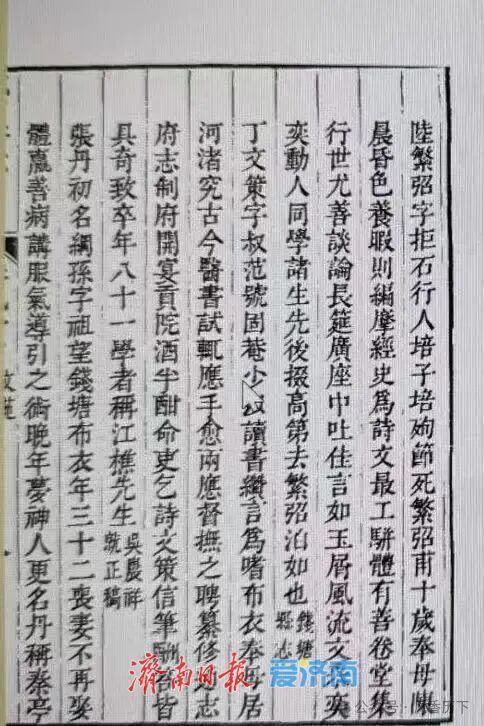 陸繁弨字拒石行人培子培殉節死繁弨甫十歲奉母陳
晨昏色養暇則編摩經史爲詩文最工駢體有善卷堂集
行世尤善談論長筵廣座中吐佳言如玉屑風流文采奕
奕動人同學諸生先後掇高第去繁弨泊如也錢塘縣志
丁文策字叔范號固菴少以讀書纘言爲嗜布衣奉母居
河渚究古今醫書試輒應手愈兩應督撫之聘纂修通志
府志制府開宴貢院酒半酣命吏乞詩文策信筆酬答皆
具奇致卒年八十一學者稱江樵先生吳農祥就正稿
張丹初名綱孫字祖望錢塘布衣年三十二喪妻不再娶
體羸善病講服氣導引之術晚年夢神人更名丹稱秦亭
文苑
濟南日报
爱济南
公众号·香历下